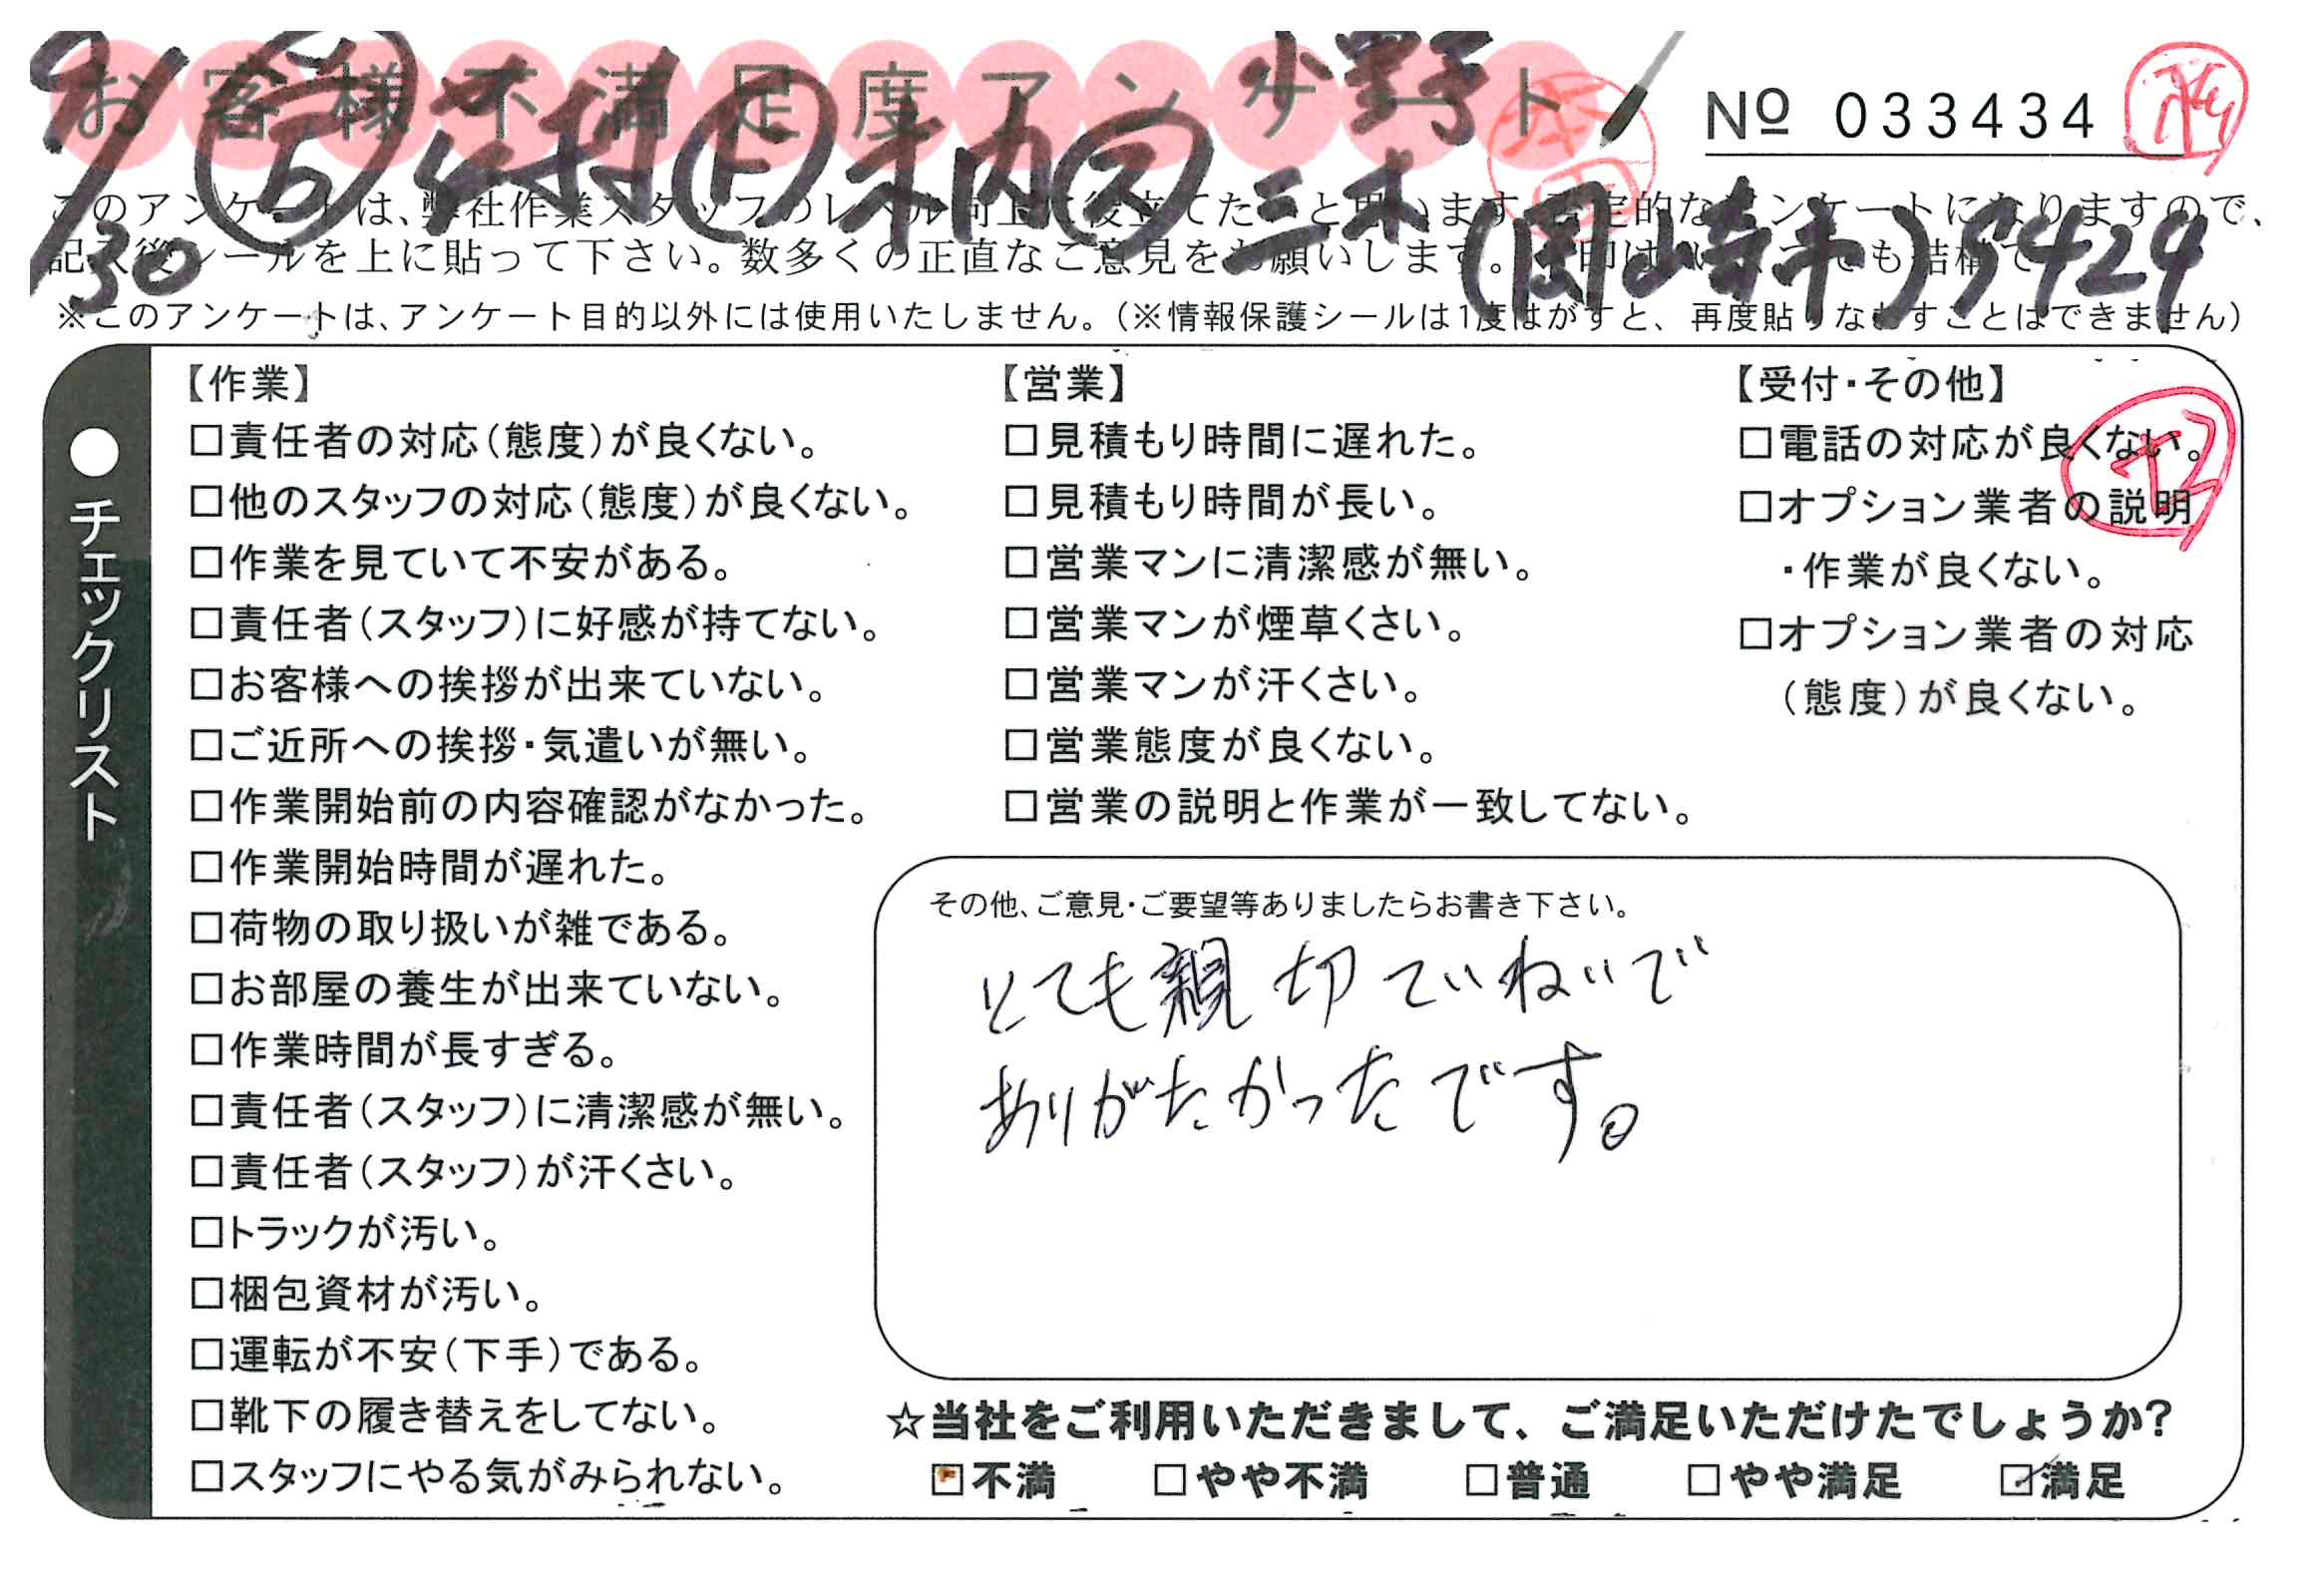 お客様不満足度アンケート
Nº 033434
9/30 木内 小野 三木 (岡崎市) 5429
このアンケートは、弊社作業スタッフのレベル向上に役立てたいと思います。定的なアンケートになりますので、
記入後シールを上に貼って下さい。数多くの正直なご意見をお願いします。
※このアンケートは、アンケート目的以外には使用いたしません。（※情報保護シールは1度はがすと、再度貼りなおすことはできません）
●チェックリスト
【作業】
□責任者の対応（態度）が良くない。
□他のスタッフの対応（態度）が良くない。
□作業を見ていて不安がある。
□責任者（スタッフ）に好感が持てない。
□お客様への挨拶が出来ていない。
□ご近所への挨拶・気遣いが無い。
□作業開始前の内容確認がなかった。
□作業開始時間が遅れた。
□荷物の取り扱いが雑である。
□お部屋の養生が出来ていない。
□作業時間が長すぎる。
□責任者（スタッフ）に清潔感が無い。
□責任者（スタッフ）が汗くさい。
□トラックが汚い。
□梱包資材が汚い。
□運転が不安（下手）である。
□靴下の履き替えをしてない。
□スタッフにやる気がみられない。
【営業】
□見積もり時間に遅れた。
□見積もり時間が長い。
□営業マンに清潔感が無い。
□営業マンが煙草くさい。
□営業マンが汗くさい。
□営業態度が良くない。
□営業の説明と作業が一致してない。
【受付・その他】
□電話の対応が良くない。
□オプション業者の説明
・作業が良くない。
□オプション業者の対応
（態度）が良くない。
その他、ご意見・ご要望等ありましたらお書き下さい。
とても親切ていねいで
ありがたかったです。
☆当社をご利用いただきまして、ご満足いただけたでしょうか?
□不満 □やや不満 □普通 □やや満足 ☑満足